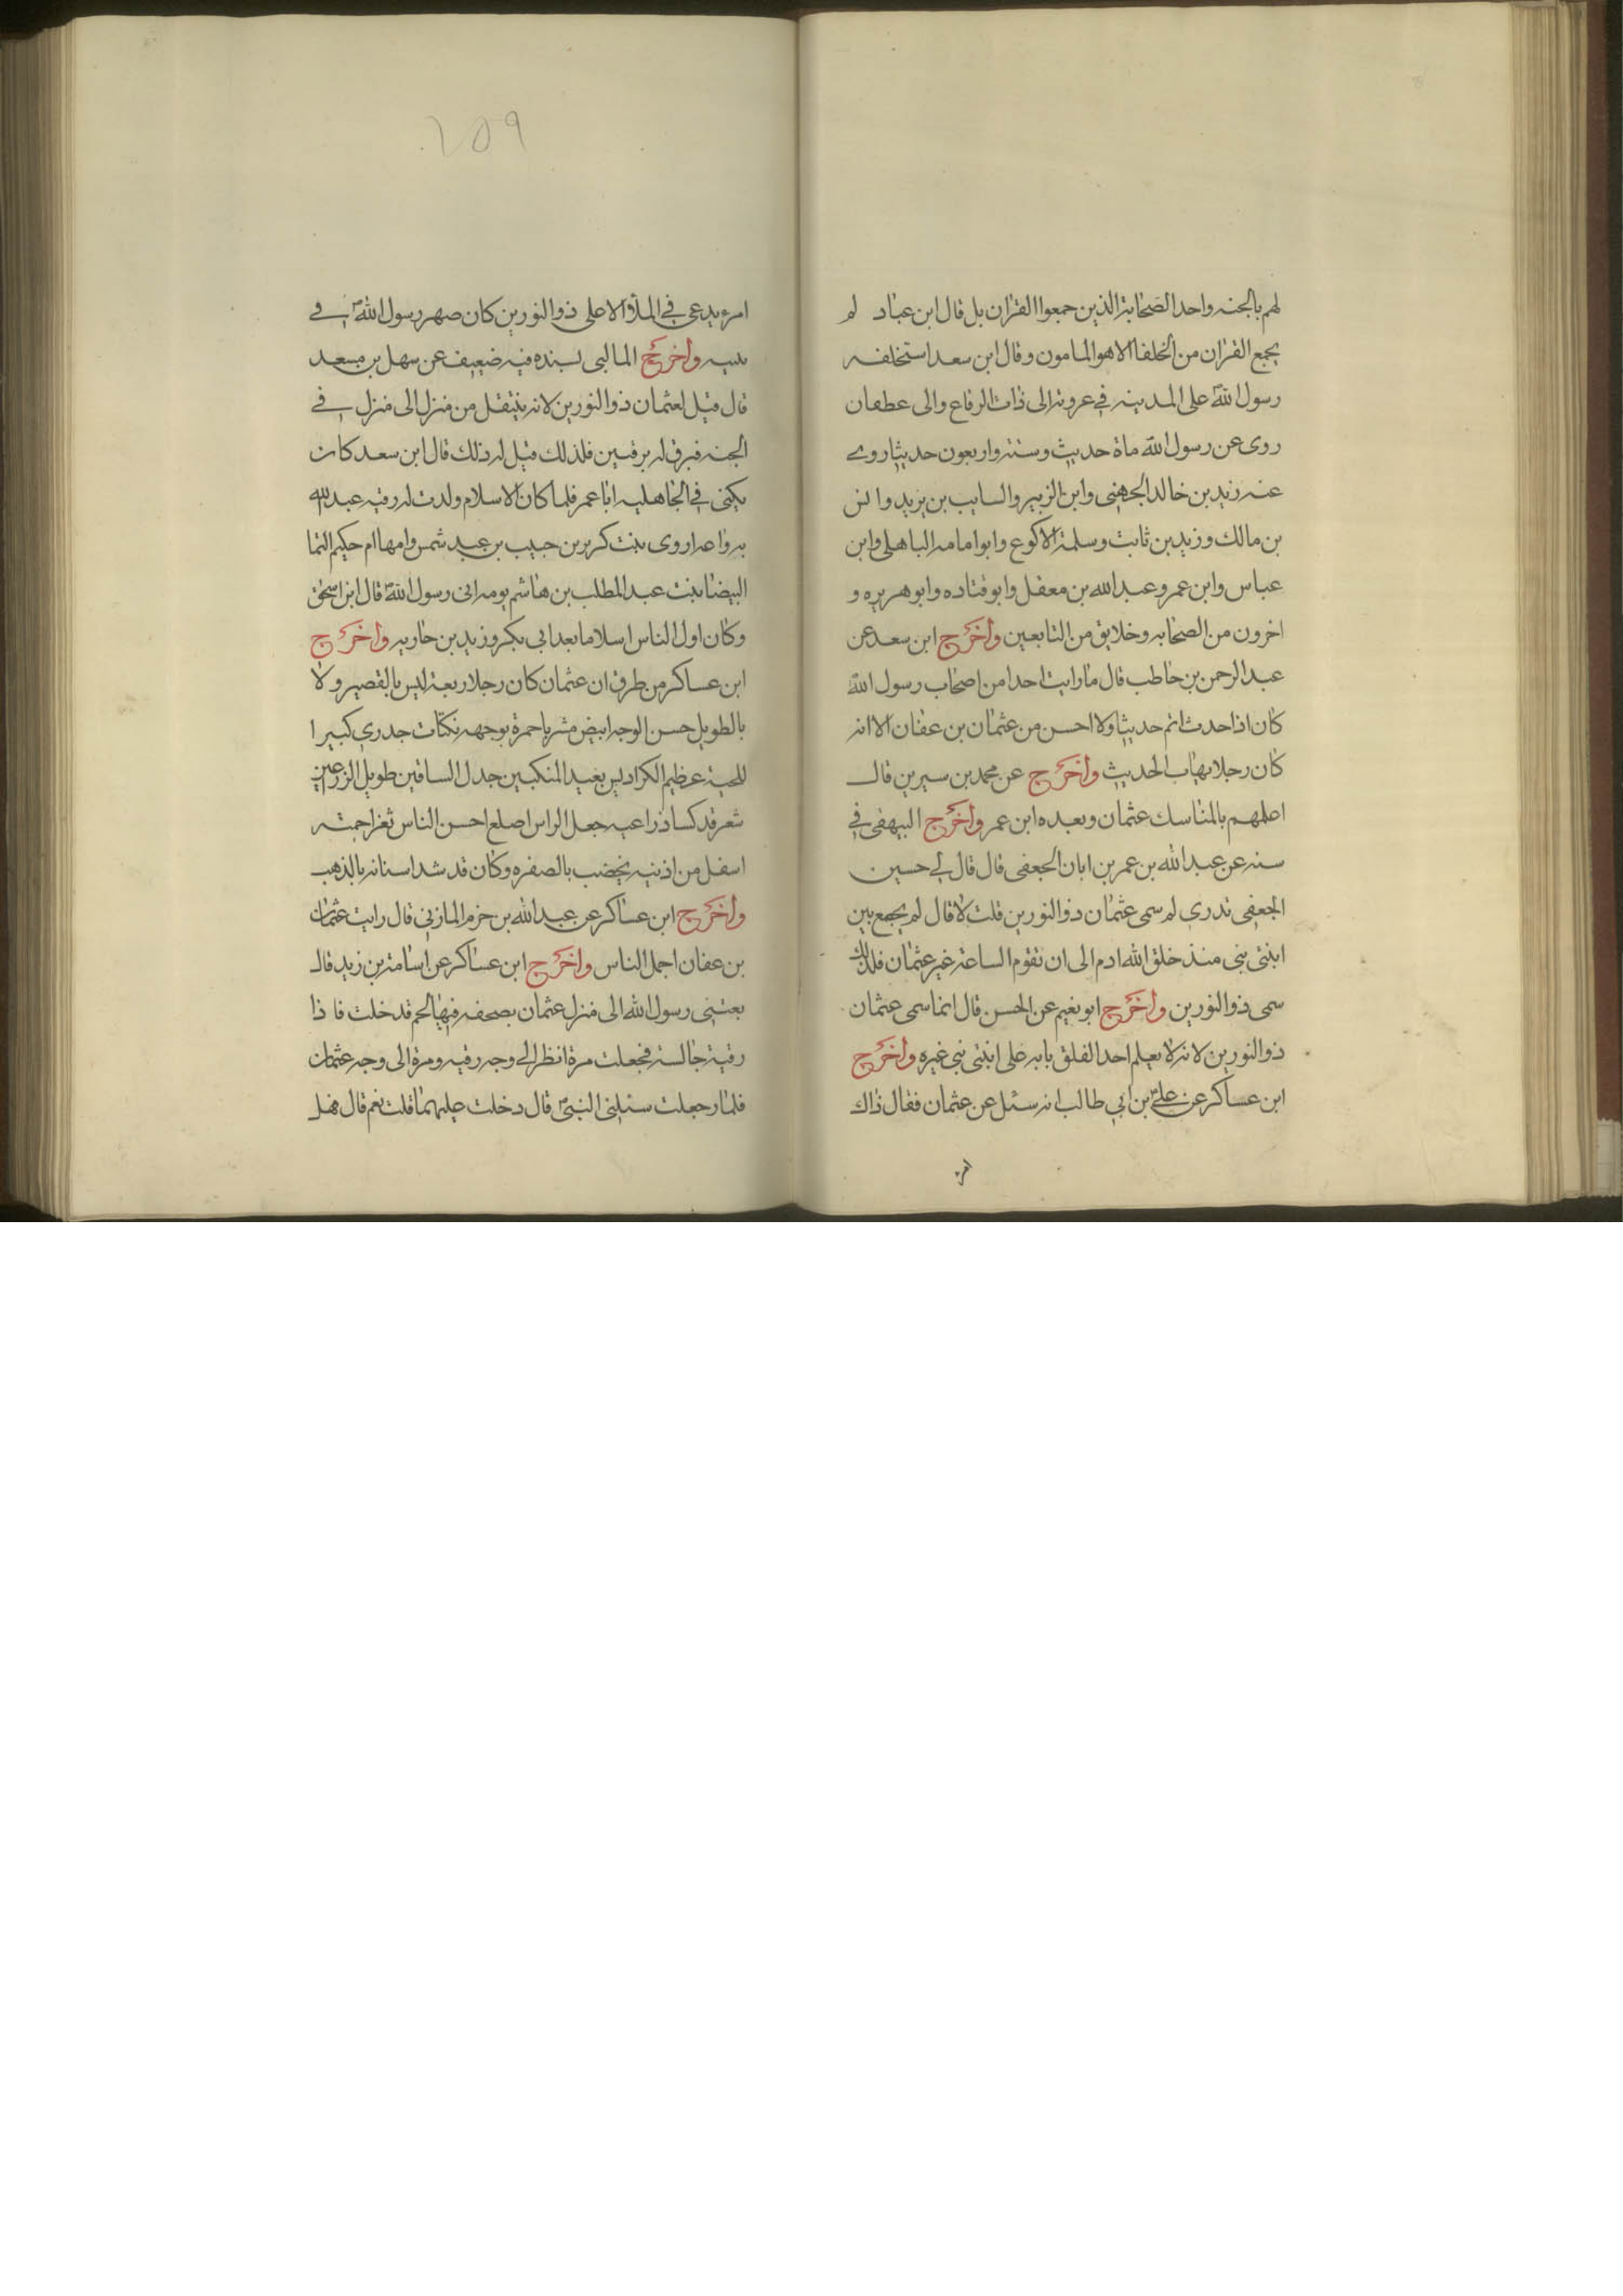 لهم بالجنه واحد الصحابة الذين جمعوا القران بل قال ابن عباد لم
يجمع القران من الخلفا الا هو المامون وقال ابن سعد استخلفه
رسول الله على المدينه في عزوته الى ذات الرقاع والى عطعان
روى عن رسول الله ماة حديث وسته واربعون حديثا روى
عنه زيد بن خالد الجهني وابن الزبير والسايب بن يزيد وانس
بن مالك وزيد بن ثابت وسلمة الاكوع وابوامامه الباهلي وابن
عباس وابن عمر وعبد الله بن معقل وابوقتاده وابوهريره و
اخرون من الصحابه وخلايق من التابعين واخرج ابن سعد عن
عبد الرحمن بن حاطب قال مارايت احدا من اصحاب رسول الله
كان اذا حدث اتم حديثا ولا احسن من عثمان بن عفان الا انه
كان رجلا يهاب الحديث واخرج عن محمد بن سيرين قال
اعلمهم بالمناسك عثمان وبعده ابن عمر واخرج البيهقي في
سنه عن عبد الله بن عمر بن ابان الجعفي قال قال لي حسين
الجعفي تدري لم سمى عثمان ذوالنورين قلت لا قال لم يجمع بين
ابنتي نبي منذ خلق الله ادم الى ان تقوم الساعة غير عثمان فلذلك
سمى ذوالنورين واخرج ابو نعيم عن الحسن قال انما سمى عثمان
ذوالنورين لانه لا يعلم احد الغلق بابه على ابنتي نبي غيره واخرج
ابن عساكر عن علي بن ابي طالب انه سئل عن عثمان فقال ذاك
٢٥٩
امرء يدعى في الملاء الاعلى ذوالنورين كان صهر رسول الله في
واخرج المالبى بسنده فيه ضعيف عن سهل بن سعد
قال قيل لعثمان ذوالنورين لانه ينتقل من منزل الى منزل في
الجنه فبرق له برقين فلذلك قيل له ذلك قال ابن سعد كان
يكنى في الجاهليه اباعمر فلما كان الاسلام ولدت له رقيه عبدالله
اروى بنت كريز بن حبيب بن عبد شمس وامها ام حكيم
البيضا بنت عبد المطلب بن هاشم رسول الله قال ابن اسحق
وكان اول الناس اسلاما بعد ابي بكر وزيد بن حاربه واخرج
ابن عساكر من طرق ان عثمان كان رجلا ربعة ليس بالقصير ولا
بالطويل حسن الوجه ابيض مشربا حمرة بوجهه نكتات جدري كبيرا
للحية عظيم الكراديس بعيد المنكبين جدل الساقين طويل الزرعين
شعره قد كسا ذراعيه جعل الراس اصلع احسن الناس ثغرا جمته
اسفل من اذنيه يخضب بالصفره وكان قد شد اسنانه بالذهب
واخرج ابن عساكر عن عبد الله بن حزم المازني قال رايت عثمان
بن عفان اجمل الناس واخرج ابن عساكر عن اسامة بن زيد قال
بعثني رسول الله الى منزل عثمان بصحفه فيها لحم قد خلت فا ذا
رقية جالسة فجعلت مرة انظر الى وجه رقيه ومرة الى وجه عثمان
فلما رجعلت سئلني النبي قال دخلت عليهما قلت نعم قال فهل